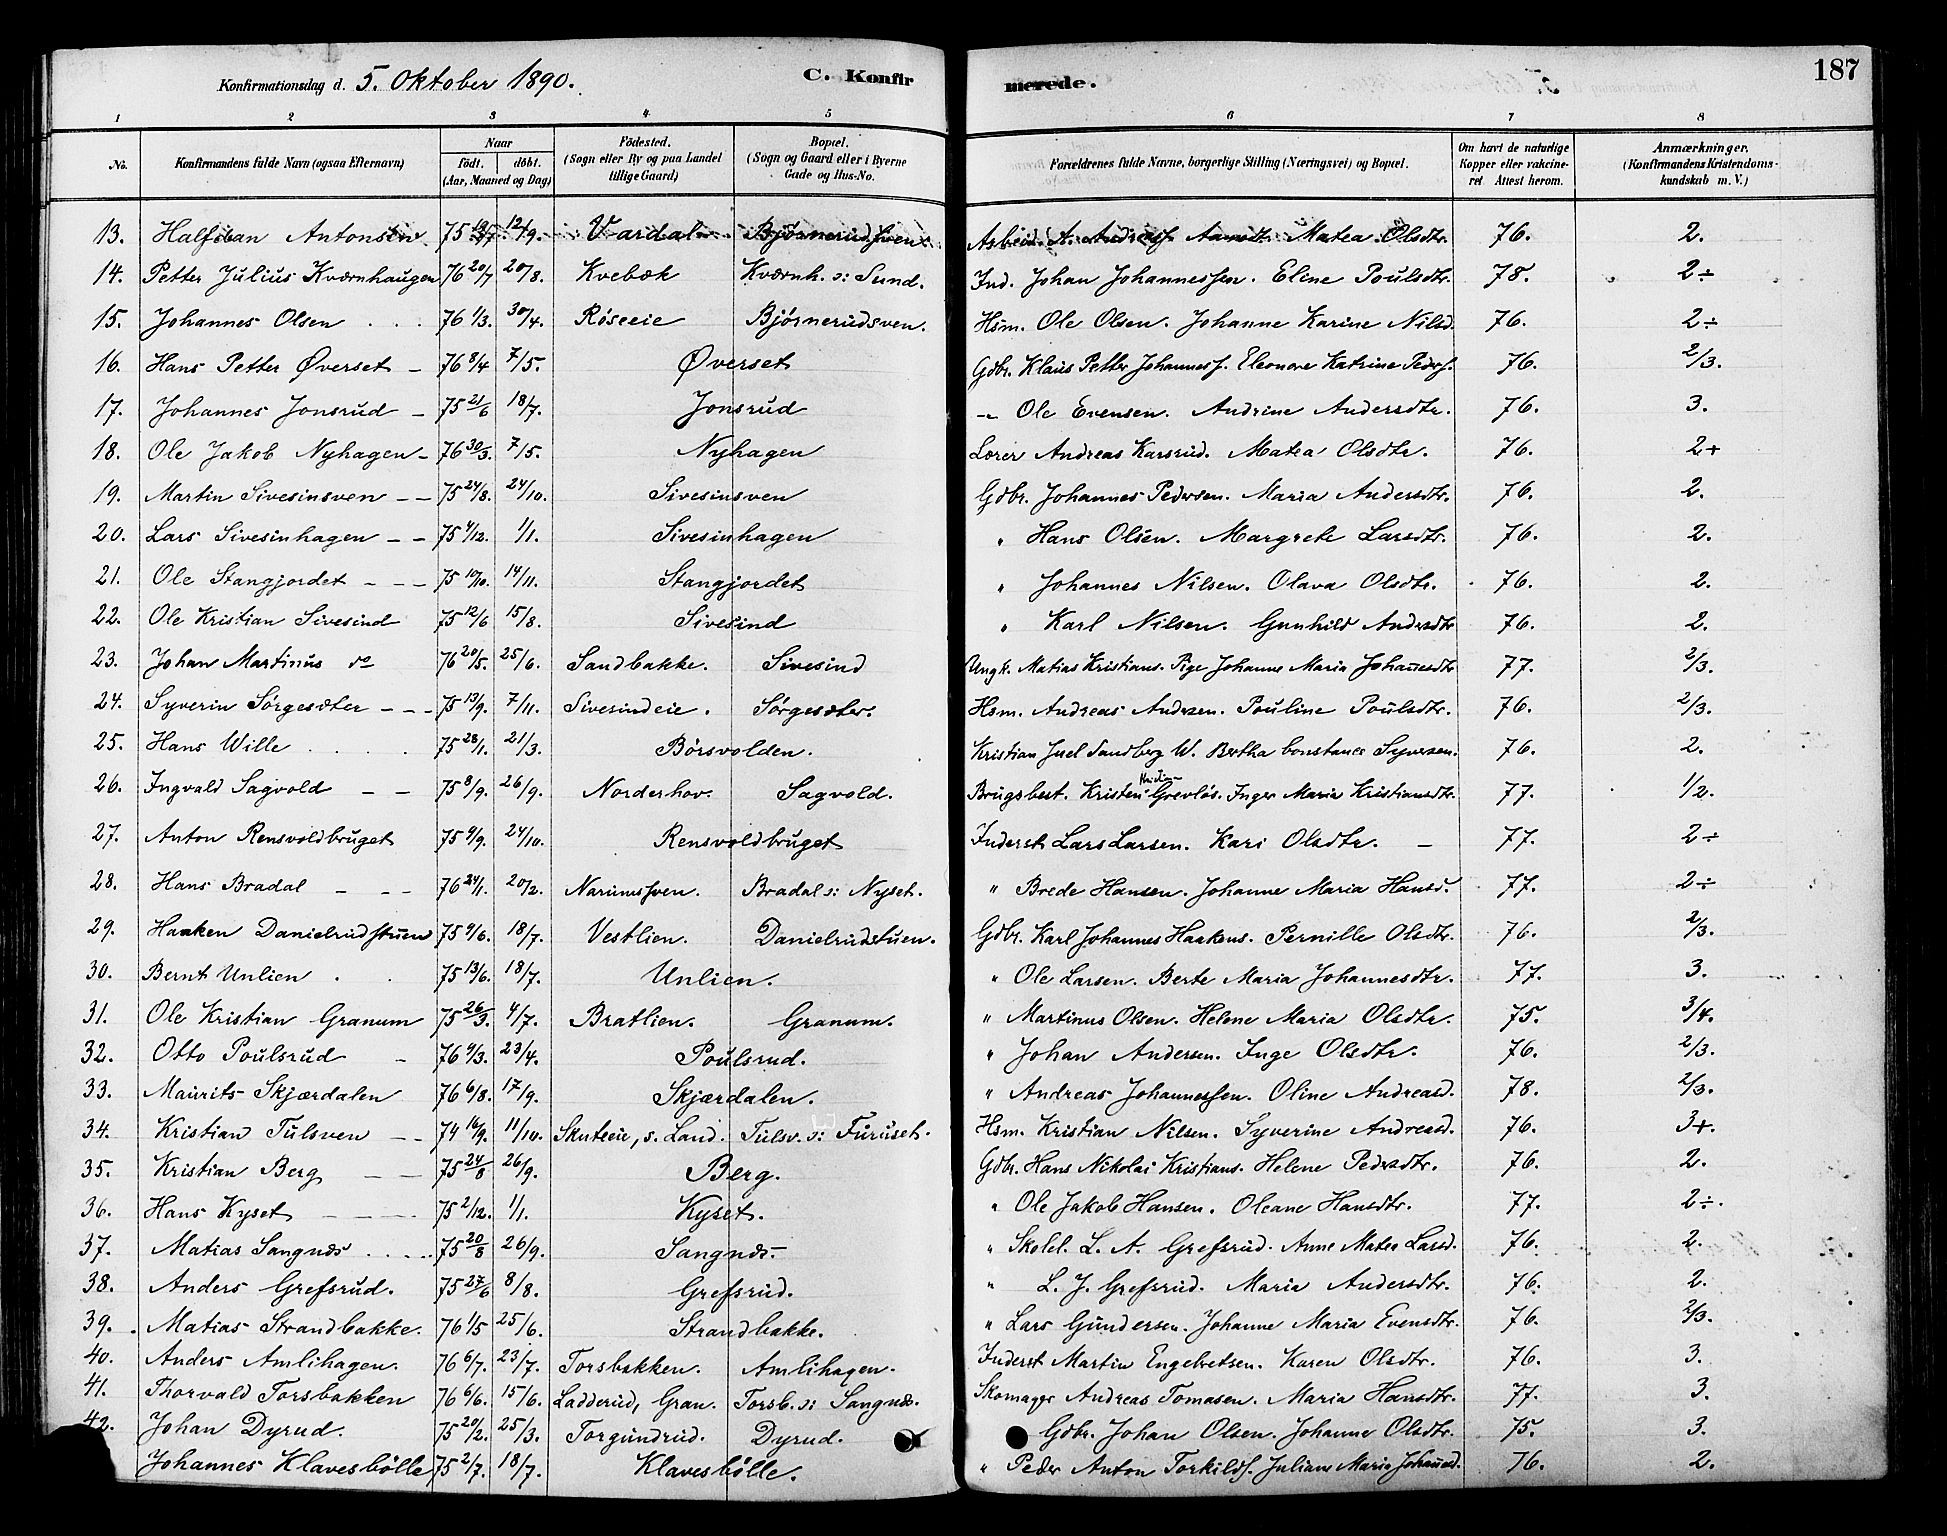 Konfirmationsdag d. 5. Oktober 1890. C. Konfirmerede. 187
1 2 3 4 5 6 7 8
No. Konfirmandens fulde Navn (ogsaa Efternavn) Naar født. døbt. (Aar, Maaned og Dag) Fødested. (Sogn eller By og paa Landet tillige Gaard) Bopæl. (Sogn og Gaard eller i Byerne Gade og Hus-No. Forældrenes fulde Navne, borgerlige Stilling (Næringsvei) og Bopæl. Om havt de naturlige Kopper eller vakcineret Attest herom. Anmærkninger. (Konfirmandens Kristendomskundskab m. V.)
13. Halfdan Antonsen 75 12/9. Vardal Bjørnerudsven Arbeid. A. Matea Olsdtr. 76. 2.
14. Petter Julius Kværnhaugen 76 20/7 20/8. Kvebæk Kværnh. ɔ: Sund. Ind. Johan Johannessen. Eline Poulsdtr. 78. 2÷
15. Johannes Olsen . . . 76 1/3. 30/4. Røseeie Bjørnerudsven. Hsm. Ole Olsen. Johanne Karine Nilsd. 76. 2÷
16. Hans Petter Øverset – 76 8/4 7/5. Øverset Gdbr. Klaus Petter Johannesf. Eleonore Katrine Pedersf. 76. 2/3.
17. Johannes Jonsrud – 75 21/6 18/7. Jonsrud –„– Ole Evensen. Andrine Andersdtr. 76. 3.
18. Ole Jakob Nyhagen – 76 30/3. 7/5. Nyhagen Lærer Andreas Karsrud. Matea Olsdtr. 76. 2+
19. Martin Sivesinsven – – 75 24/8. 24/10. Sivesinsven Gdbr. Johannes Pedersen. Maria Andersdtr. 76. 2.
20. Lars Sivesinhagen – – 75 4/12. 1/1. Sivesinhagen „ Hans Olsen. Margrete Larsdtr. 76. 2.
21. Ole Stangjordet – – – 75 10/10. 14/11. Stangjordet „ Johannes Nilsen. Olava Olsdtr. 76. 2.
22. Ole Kristian Sivesind 75 12/6 15/8. Sivesind „ Karl Nilsen. Gunhild Andersdtr 76. 2.
23. Johan Martinus do 76 20/5. 25/6. Sandbakke. Sivesind Ungk. Matias Kristians. Pige Johanne Maria Johannesdtr 77. 2/3.
24. Syverin Sørgesæter – – – 75 13/9. 7/11. Sivesindeie. Sørgesæter. Hsm. Andreas Andersen. Pouline Poulsdtr. 76. 2/3.
25. Hans Wille . . . . 75 28/1. 21/3. Børsvolden. Kristian Juel Sandberg W. Bertha Constance Syversen. 76. 2.
26. Ingvald Sagvold – – 75 8/9. 26/9. Norderhov. Sagvold. Brugsbest. Kristen Grevløs. Inger Maria Kristiansdtr. 77. 1/2.
27. Anton Rensvoldbruget 75 9/9. 24/10. Rensvoldbruget Inderst Lars Larsen. Kari Olsdtr. – 77. 2÷
28. Hans Bradal – – – 76 24/1. 20/2. Narumsven. Bradal ɔ: Nyset. „ Brede Hansen. Johanne Maria Hansd. 77. 2÷
29. Haaken Danielrudstuen 75 9/6. 18/7. Vestlien. Danielrudstuen. Gdbr. Karl Johannes Haakens. Pernille Olsdtr. 76. 2/3.
30. Bernt Unlien . . 75 13/6. 18/7. Unlien. „ Ole Larsen. Berte Maria Johannesdtr. 77. 3.
31. Ole Kristian Granum 75 26/3. 4/7. Bratlien. Granum. „ Martinus Olsen. Helene Maria Olsdtr. 75. 3/4.
32. Otto Poulsrud – 76 9/3. 23/4. Poulsrud. „ Johan Andersen. Inge Olsdtr. 76. 2/3.
33. Maurits Skjærdalen 76 6/8. 17/9. Skjærdalen. „ Andreas Johannessen. Oline Andreasd. 78. 2/3.
34. Kristian Tulsven – – 74 16/9. 11/10. Skuteeie, s. Land. Tulsv. ɔ: Furuset. Hsm. Kristian Nilsen. Syverine Andreasd. 76. 3+.
35. Kristian Berg – – 75 24/8 26/9. Berg. Gdbr. Hans Nikolai Kristians. Helene Pedersdtr. 76. 2.
36. Hans Kyset – – – – 75 2/12. 1/1. Kyset. „ Ole Jakob Hansen. Oleane Hansdtr. 77. 2÷.
37. Matias Sangnæs . . . . . 75 20/8 26/9. Sangnæs. „ Skolel. L. A. Grefsrud. Anne Matea Larsd. 76. 2.
38. Anders Grefsrud. 75 27/6 8/8. Grefsrud. „ L. J. Grefsrud. Maria Andersdtr. 76. 2.
39. Matias Strandbakke. 76 1/5 25/6. Strandbakke. „ Lars Gundersen. Johanne Maria Evensdtr. 76. 2/3.
40. Anders Amlihagen. 76 6/7. 23/7. Torsbakken. Amlihagen. Inderst Martin Engebretsen. Karen Olsdtr. 76. 3.
41. Thorvald Torsbakken 76 6/6. 15/6. Ladderud, Gran. Torsb. ɔ: Sangnæs. Skomager Andreas Tomasen. Maria Hansdtr. 77. 3.
42. Johan Dyrud. 75 20/2. 25/3. Torgundrud. Dyrud. Gdbr. Johan Olsen. Johanne Olsdtr. 75. 3.
Johannes Klavesbølle 75 2/7. 18/7. Klavesbølle. „ Peder Anton Torkilds. Juliane Maria Johannesd. 76. 2.